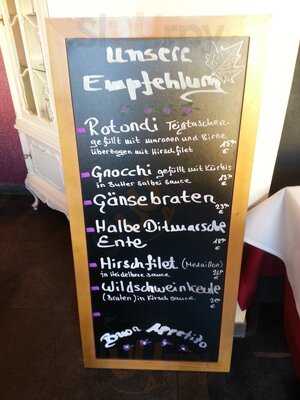 Unsere
Empfehlung
Rotondi Teigtaschen
gefüllt mit maronen und Birne
überzogen mit Hirschfilet
Gnocchi gefüllt mit Kürbis
in Butter Salbei Sauce
Gänsebraten
Halbe Ditmarsche
Ente
Hirschfilet (Medaillon)
in Heidelbere sauce
Wildschweinkeule
(Braten) in Kirsch Sauce
Buon Appetito